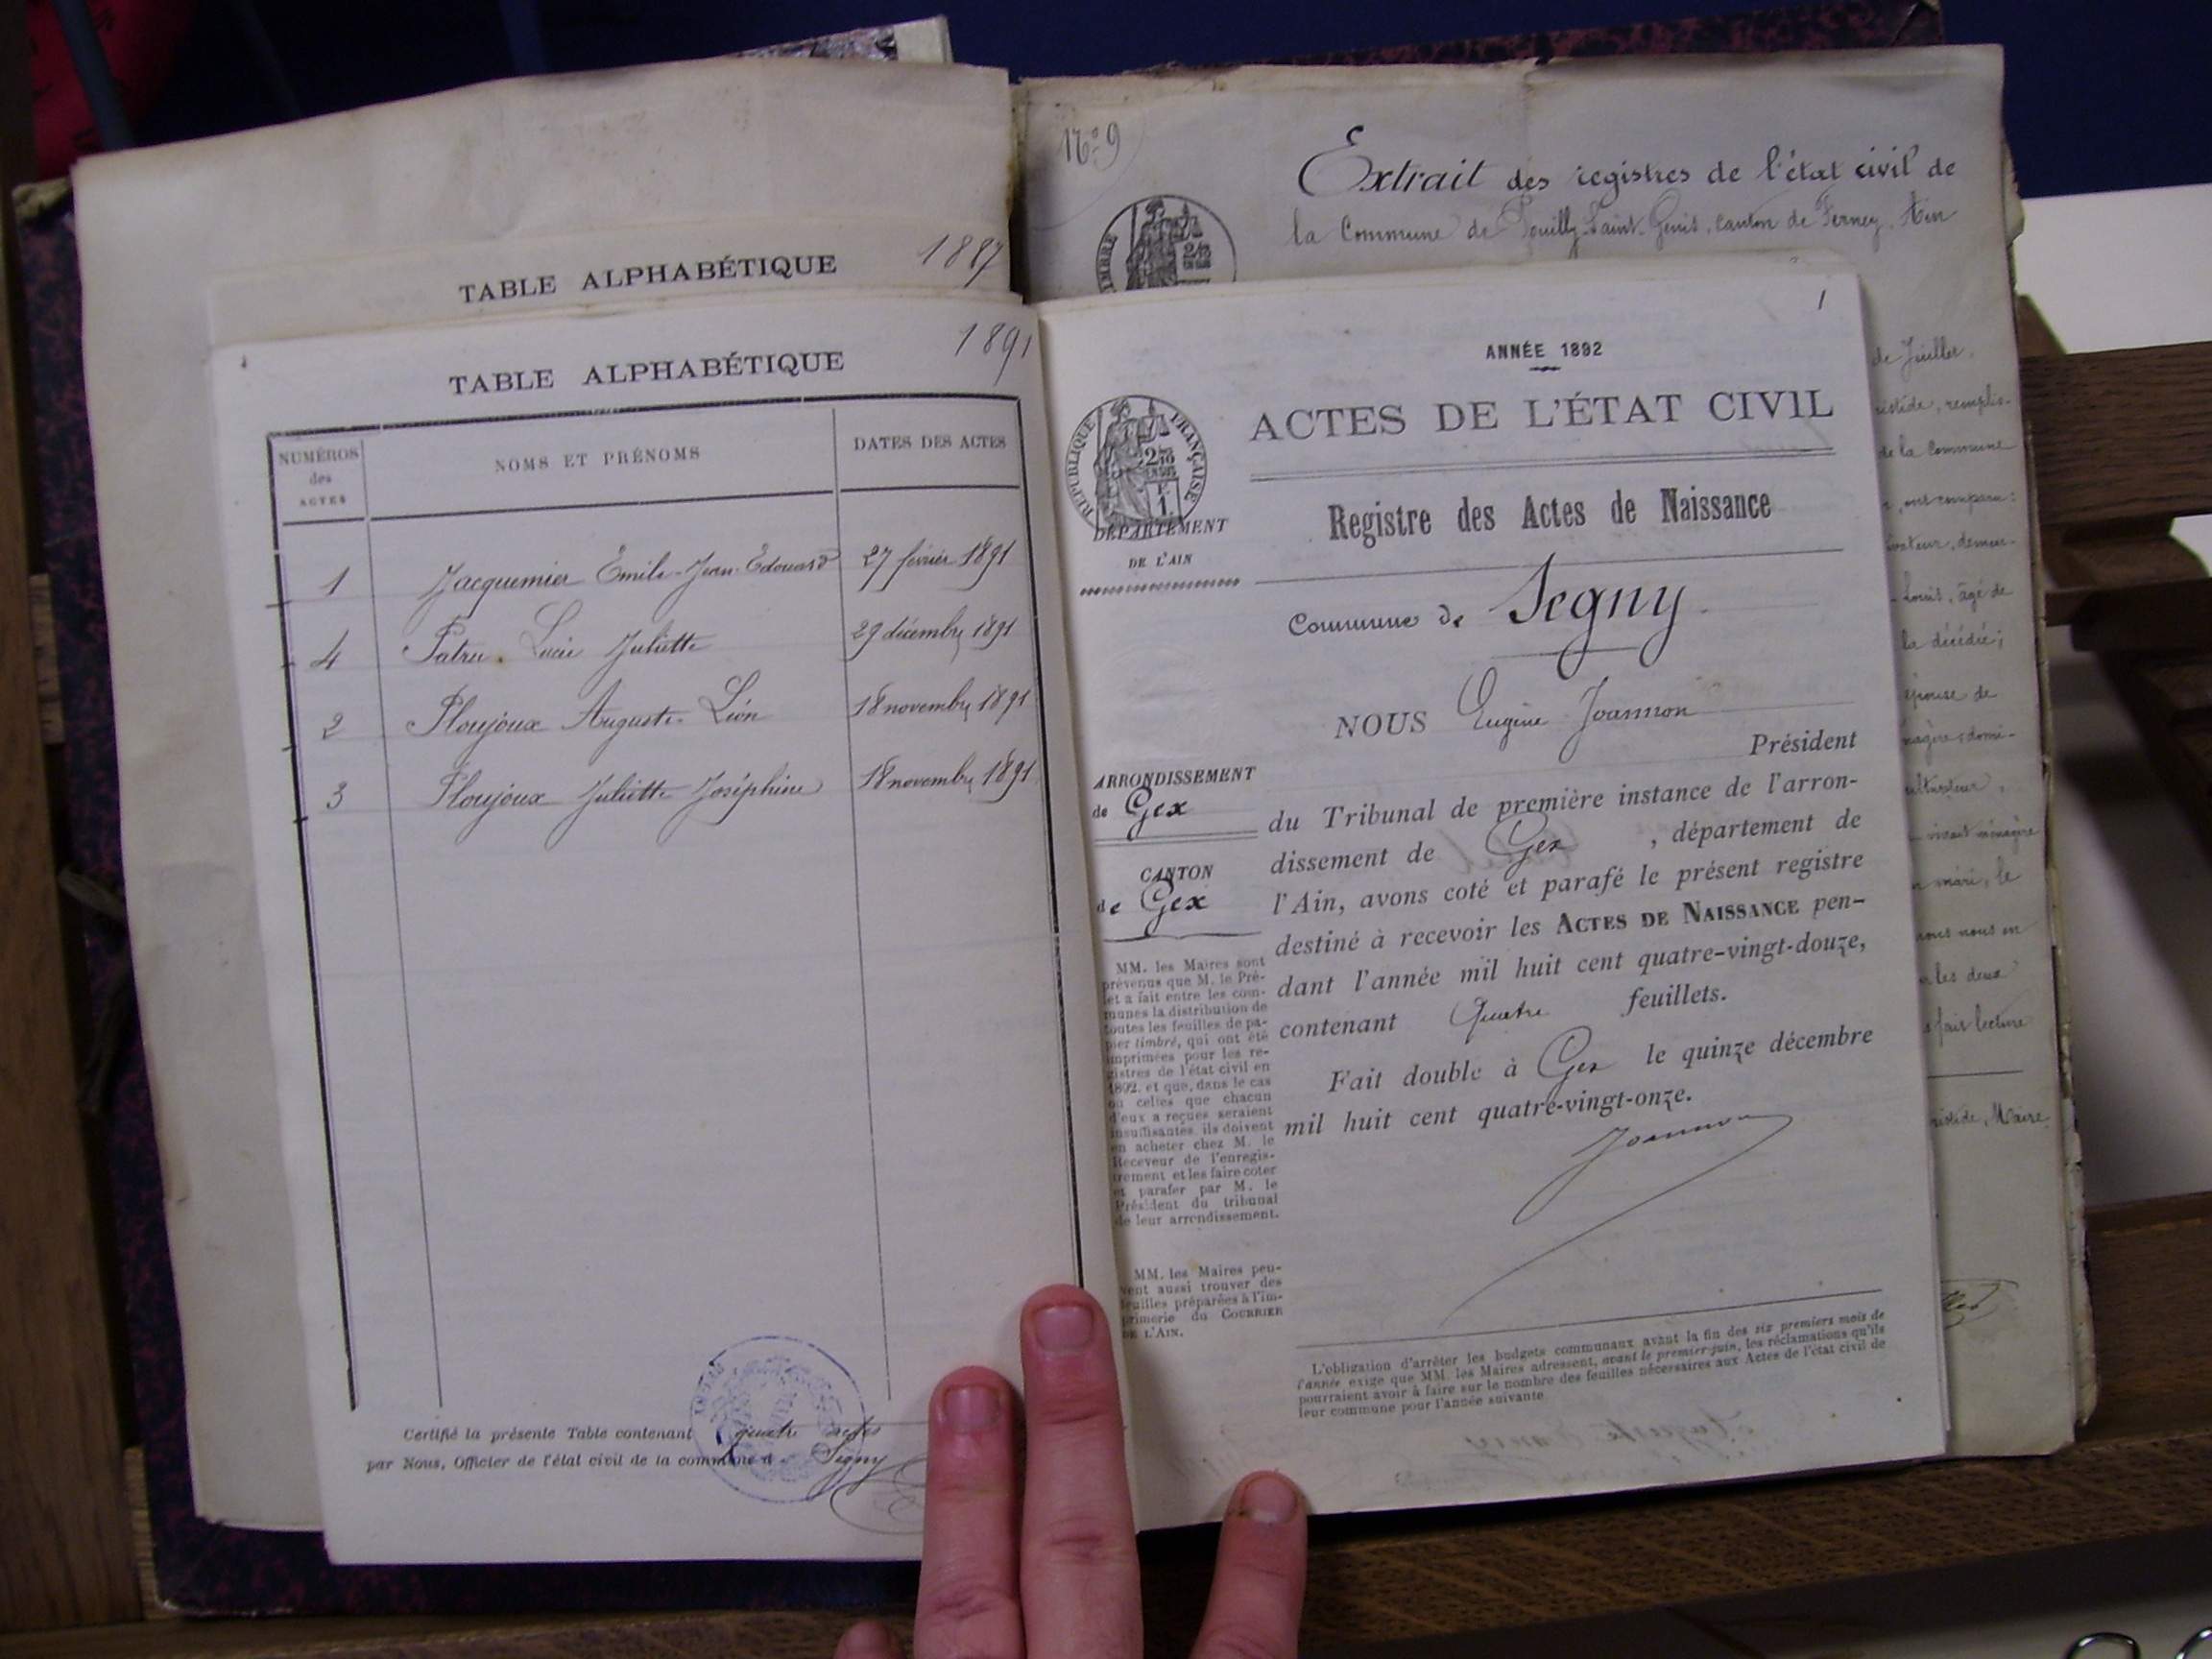 TABLE ALPHABÉTIQUE
1887
TABLE ALPHABÉTIQUE
1891
NUMÉROS
des
ACTES
NOMS ET PRÉNOMS
DATES DES ACTES
1 Jacquemier Émile-Jean-Édouard 27 février 1891
4 Patru Lucie Juliette 29 décembre 1891
2 Ploujoux Auguste Léon 18 novembre 1891
3 Ploujoux Juliette Joséphine 18 novembre 1891
Certifié la présente Table contenant quatre actes
par Nous, Officier de l'état civil de la commune d Segny
No 9
Extrait des registres de l'état civil de
la Commune de Pouilly-Saint-Genis, canton de Ferney, Ain
1
ANNÉE 1892
ACTES DE L'ÉTAT CIVIL
RÉPUBLIQUE FRANÇAISE
DÉPARTEMENT
DE L'AIN
Registre des Actes de Naissance
Commune de Segny
NOUS Eugène Joannon
Président
du Tribunal de première instance de l'arron-
dissement de Gex, département de
l'Ain, avons coté et parafé le présent registre
destiné à recevoir les ACTES DE NAISSANCE pen-
dant l'année mil huit cent quatre-vingt-douze,
contenant Quatre feuillets.
Fait double à Gex le quinze décembre
mil huit cent quatre-vingt-onze.
Joannon
ARRONDISSEMENT
de Gex
CANTON
de Gex
MM. les Maires sont
prévenus que M. le Pré-
fet a fait entre les com-
munes la distribution de
toutes les feuilles de pa-
pier timbré, qui ont été
imprimées pour les re-
gistres de l'état civil en
1892, et que, dans le cas
où celles que chacun
d'eux a reçues seraient
insuffisantes, ils doivent
en acheter chez M. le
Receveur de l'enregis-
trement et les faire coter
et parafer par M. le
Président du tribunal
de leur arrondissement.
MM. les Maires peu-
vent aussi trouver des
feuilles préparées à l'im-
primerie du COURRIER
DE L'AIN.
L'obligation d'arrêter les budgets communaux avant la fin des six premiers mois de
l'année exige que MM. les Maires adressent, avant le premier-juin, les réclamations qu'ils
pourraient avoir à faire sur le nombre des feuilles nécessaires aux Actes de l'état civil de
leur commune pour l'année suivante
de Juillet.
remplis-
de la Commune
ont comparu:
demeu-
Louis, âgé de
la décédée;
épouse de
domi-
mari, le
nous en
les deux
fait lecture
Maire